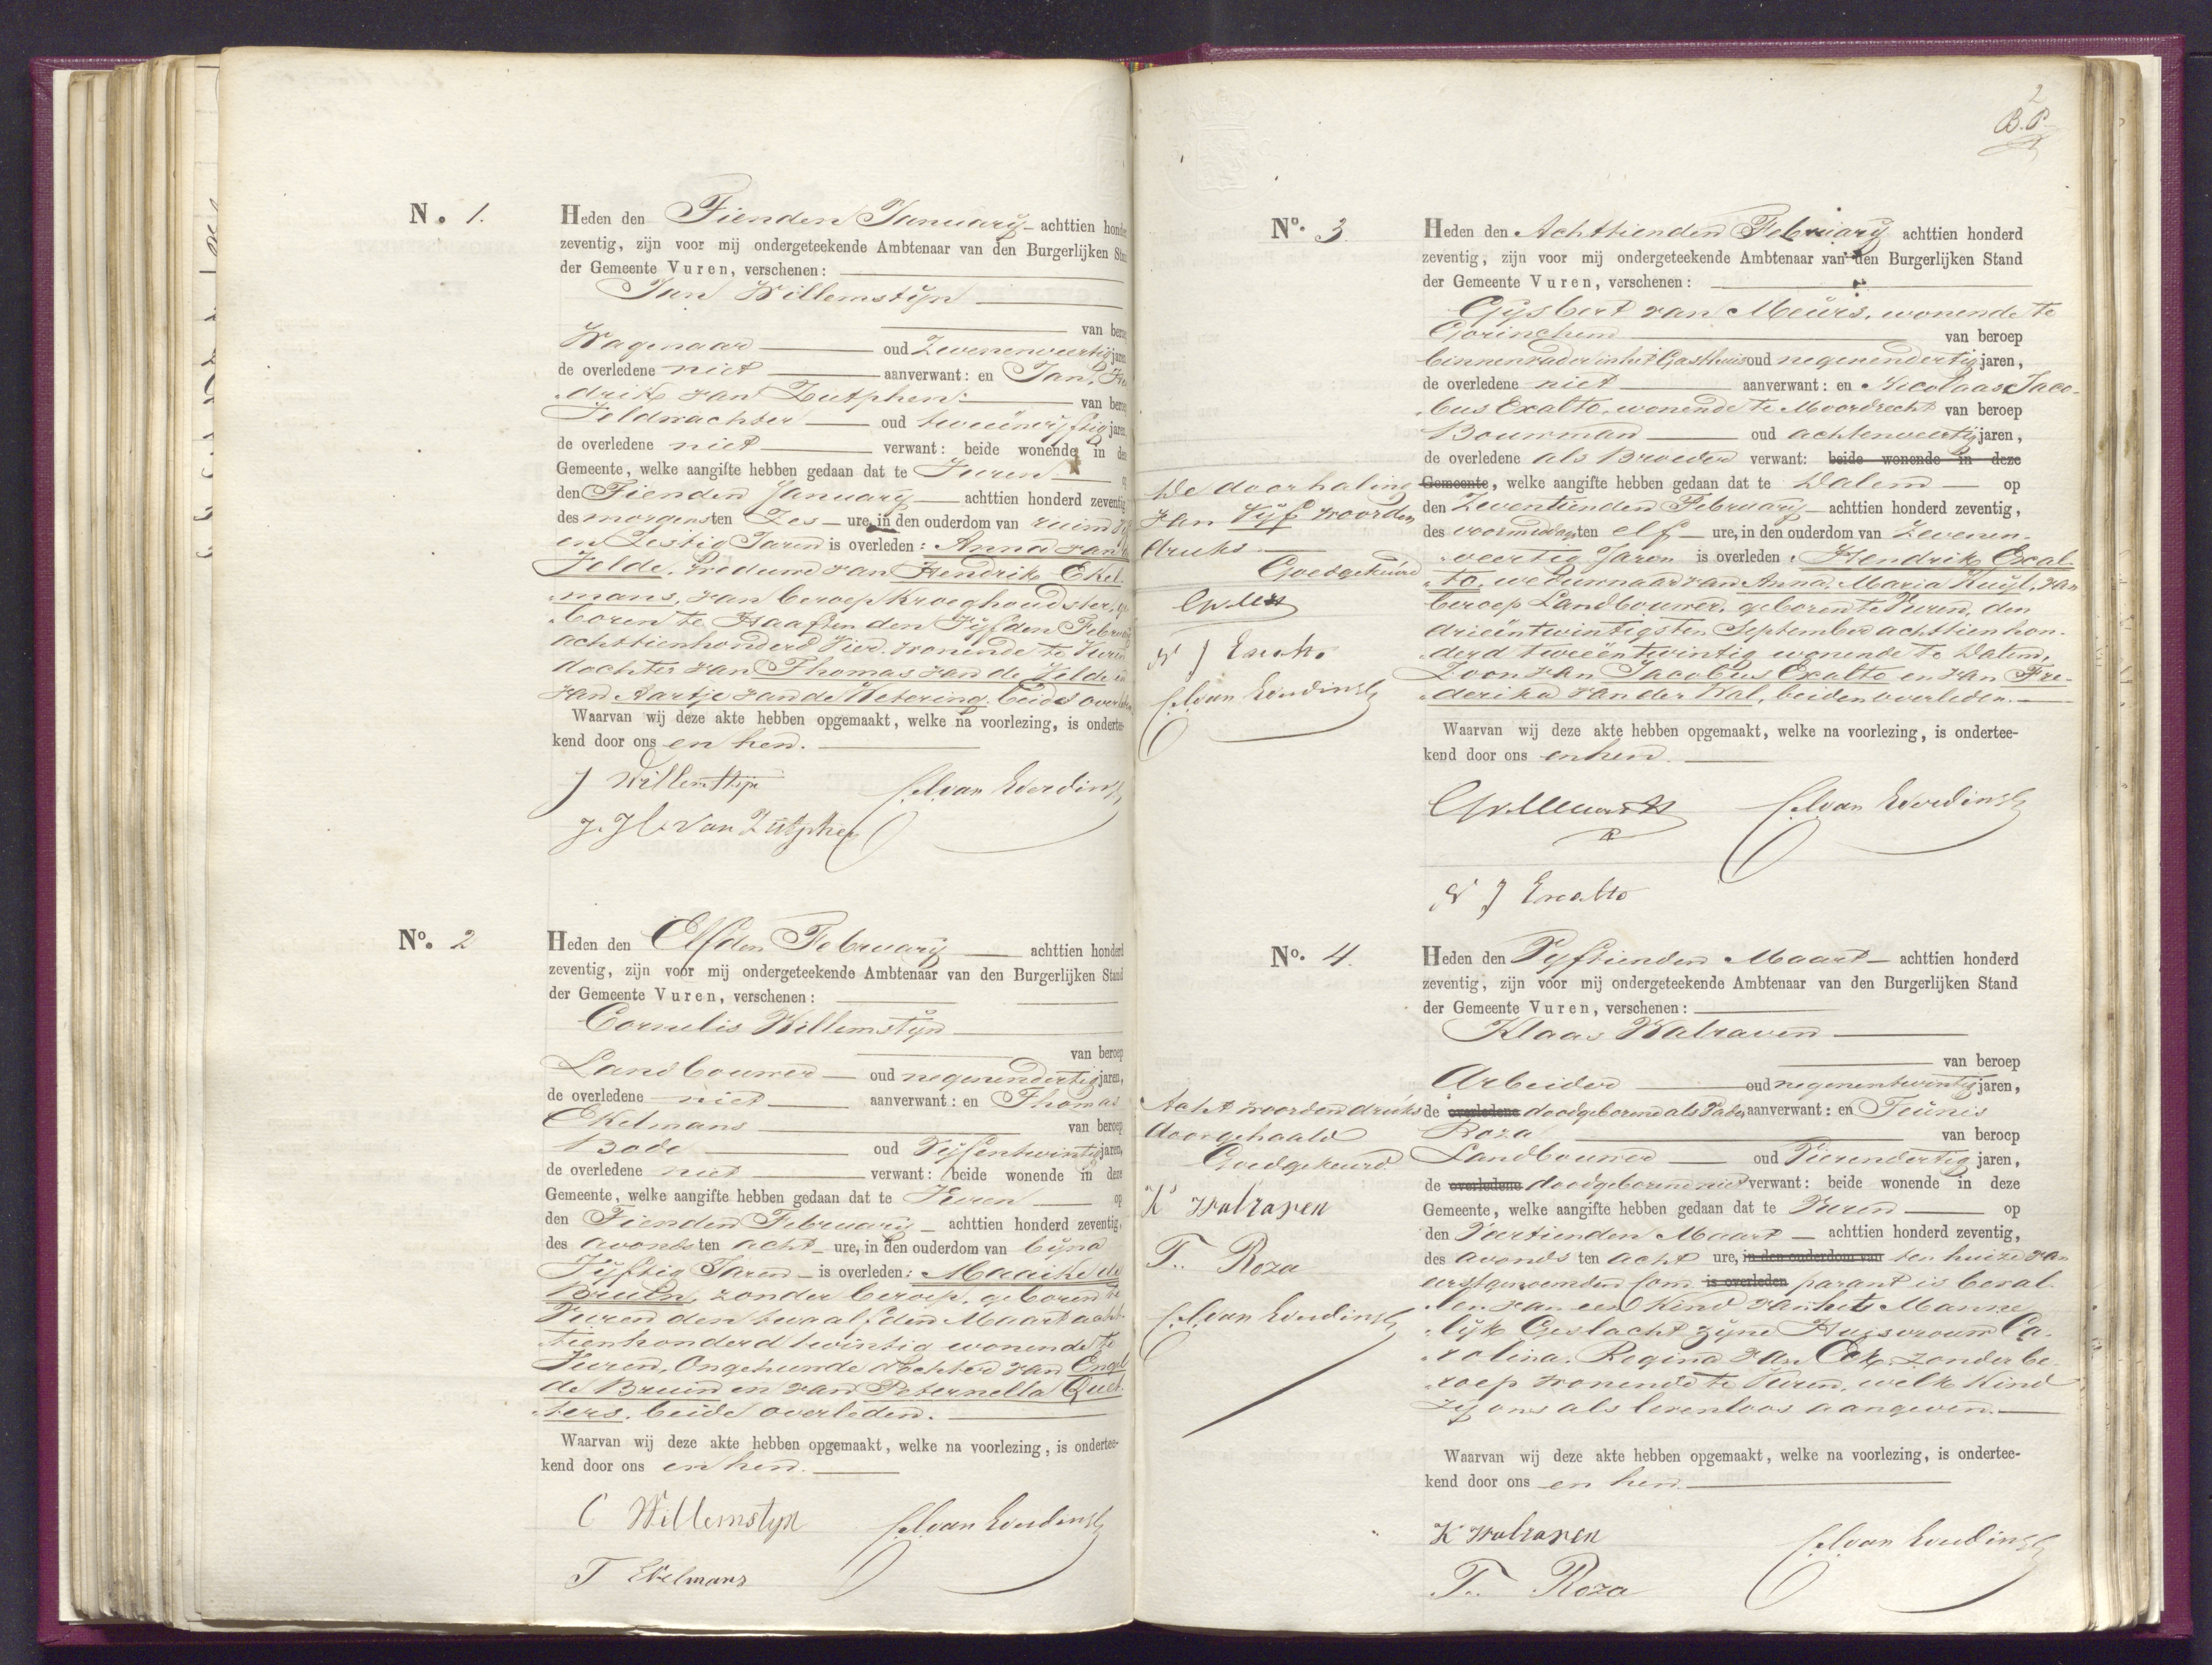 N. 1.
Heden den Tienden January achttien honder
zeventig, zijn voor mij ondergeteekende Ambtenaar van den Burgerlijken Stan
der Gemeente Vuren, verschenen:
Jan Willemstijn
van beroep
Wagenaar oud Zevenenveertig jaren
de overledene niet aanverwant: en Jan, Hen
drik van Zutphen van beroep
Veldwachter oud tweeënvijftig jaren
de overledene niet verwant: beide wonende in dez
Gemeente, welke aangifte hebben gedaan dat te Vuren op
den Tienden January achttien honderd zeventig
des morgens ten Zes ure, in den ouderdom van ruim
en Zestig Jaren is overleden: Anna van de
Velde, weduwe van Hendrik Ekel-
mans, van beroep Kroeghoudster, ge
boren te Haaften den Vijfden Februarij
achttienhonderd Vier. wonende te Vuren
dochter van Thomas van de Velde en
van Aartje van de Wetering. beide overleden
Waarvan wij deze akte hebben opgemaakt, welke na voorlezing, is ondertee-
kend door ons en hen.
J Willemstijn
J. H. van Zutphen
No. 2
Heden den Elfden February achttien honderd
zeventig, zijn voor mij ondergeteekende Ambtenaar van den Burgerlijken Stand
der Gemeente Vuren, verschenen:
Cornelis Willemstijn
van beroep
Landbouwer oud negenendertig jaren,
de overledene niet aanverwant: en Thomas
Ekelmans van beroep
Bode oud Vijfentwintig jaren,
de overledene niet verwant: beide wonende in deze
Gemeente, welke aangifte hebben gedaan dat te Vuren op
den Tienden February achttien honderd zeventig,
des avonds ten acht ure, in den ouderdom van bijna
Vijftig Jaren is overleden: Maaike de
Bruin, zonder beroep, geboren te
Vuren den twaalfden Maart acht-
tienhonderd twintig wonende te
Vuren, Ongehuwde dochter van Engel
de Bruin en van Peternella
ters, beide overleden.
Waarvan wij deze akte hebben opgemaakt, welke na voorlezing, is ondertee-
kend door ons en hen.
C Willemstyn
T Ekelmans
2
B.P.
No. 3.
Heden den Achttienden February achttien honderd
zeventig, zijn voor mij ondergeteekende Ambtenaar van den Burgerlijken Stand
der Gemeente Vuren, verschenen:
Gijsbert van Meurs, wonende te
Gorinchem van beroep
binnenvader in het Gasthuis oud negenendertig jaren,
de overledene niet aanverwant: en Nicolaas Jaco-
bus Exalto, wonende te Moordrecht van beroep
Bouwman oud achtenveertig jaren,
de overledene als Broeder verwant: beide wonende in deze
Gemeente, welke aangifte hebben gedaan dat te Dalem op
den Zeventienden February achttien honderd zeventig,
des voormiddags ten elf ure, in den ouderdom van Zevenen-
veertig Jaren is overleden: Hendrik Exal-
to, weduwnaar van Anna, Maria Kuyl, van
beroep Landbouwer, geboren te Vuren, den
drieëntwintigsten September achttienhon-
derd tweeentwintig wonende te Dalem,
Zoon van Jacobus Exalto en van Fre-
derika van der Wal, beiden overleden.
Waarvan wij deze akte hebben opgemaakt, welke na voorlezing, is ondertee-
kend door ons en hen.
N J Exalto
De doorhaling
van Vijf woorden
druks
Goedgekeurd
N J Exalto
No. 4.
Heden den Vijftienden Maart achttien honderd
zeventig, zijn voor mij ondergeteekende Ambtenaar van den Burgerlijken Stand
der Gemeente Vuren, verschenen:
Klaas Walraven
van beroep
Arbeider oud negenentwintig jaren,
de overledene doodgeborene als Vader aanverwant: en Teunis
Roza van beroep
Landbouwer oud Vierendertig jaren,
de overledene doodgeborene niet verwant: beide wonende in deze
Gemeente, welke aangifte hebben gedaan dat te Vuren op
den Veertienden Maart achttien honderd zeventig,
des avonds ten acht ure, in den ouderdom van ten huize van
eerstgenoemden Com is overleden parant is beval-
len van een Kind van het Manne-
lijk Geslacht zijne Huisvrouw Ca-
rolina, Regina van Eck, zonder be-
roep wonende te Vuren, welk Kind
zij ons als levenloos aangeven.
Waarvan wij deze akte hebben opgemaakt, welke na voorlezing, is ondertee-
kend door ons en hen.
K Walraven
T. Roza
Acht woorden druks
doorgehaald
Goedgekeurd
K Walraven
T. Roza